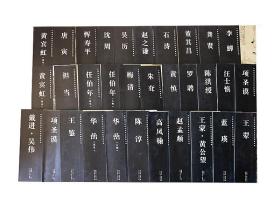 黄宾虹
唐寅
恽寿平
沈周
吴历
赵之谦
石涛
董其昌
龚贤
李鱓
黄宾虹
担当
任伯年
任伯年
梅清
朱耷
黄慎
罗聘
陈洪绶
汪士慎
项圣谟
戴进·吴伟
项圣谟
王鉴
华喦
华喦
陈淳
高凤翰
赵孟頫
王蒙·黄公望
蓝瑛
王翚